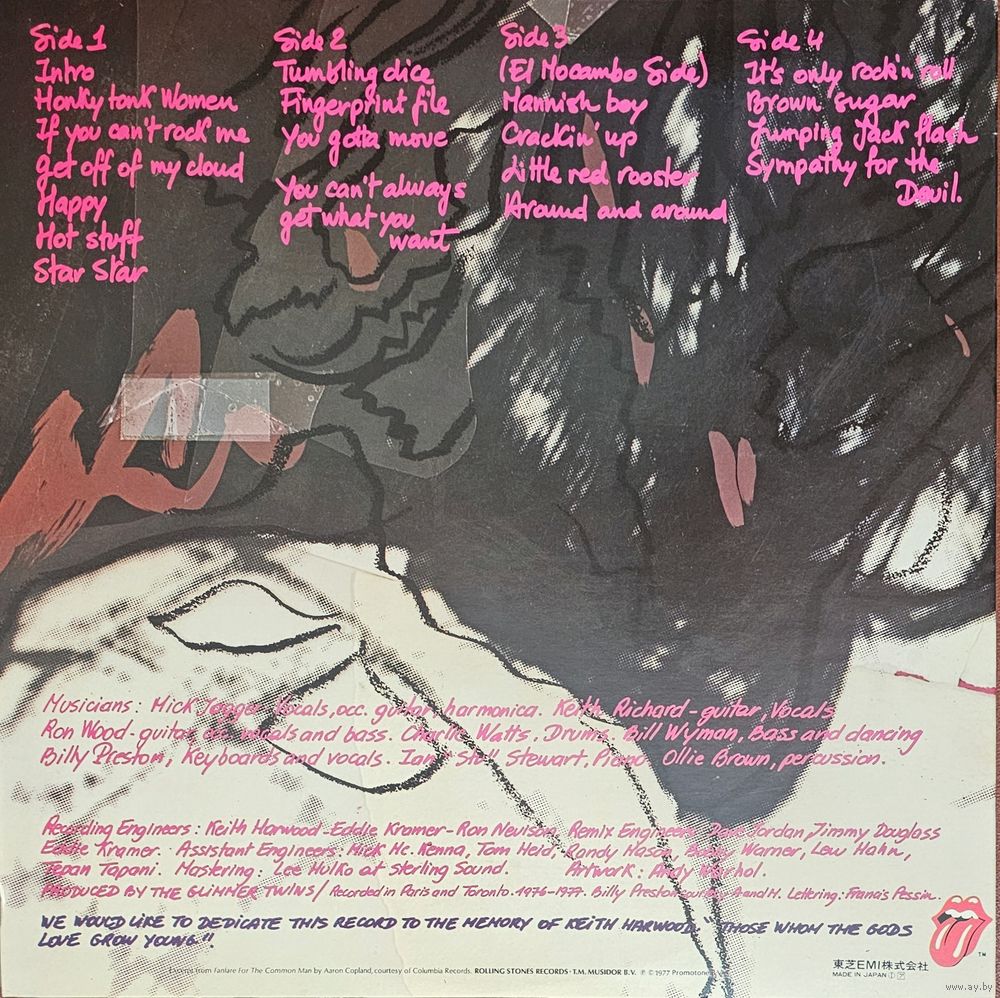 Side 1
Intro
Honky tonk Women
If you can't rock me
get off of my cloud
Happy
Hot stuff
Star Star
Side 2
Tumbling dice
Fingerprint file
You gotta move
You can't always
get what you
want
Side 3
(El Mocambo Side)
Mannish boy
Crackin up
Little red rooster
Around and around
Side 4
It's only rock'n'roll
Brown sugar
Jumping Jack flash
Sympathy for the
Devil.
Musicians: Mick Jagger - Vocals, occ. guitar, harmonica. Keith Richard - guitar, Vocals
Ron Wood - guitar, occ. vocals and bass. Charlie Watts, Drums, Bill Wyman, Bass and dancing
Billy Preston, Keyboards and vocals. Ian "Stu" Stewart, Piano Ollie Brown, percussion.
Recording Engineers: Keith Harwood - Eddie Kramer - Ron Nevison, Remix Engineers Dave Jordan, Jimmy Douglass
Eddie Kramer. Assistant Engineers: Mick Mc. Kenna, Tom Heid, Randy Mason, Bobby Warner, Lew Hahn,
Tepan Tapani. Mastering: Lee Hulko at Sterling Sound. Artwork: Andy Warhol.
PRODUCED BY THE GLIMMER TWINS / Recorded in Paris and Toronto. 1976-1977. Billy Preston A and M. Lettering: Francis Pessin.
WE WOULD LIKE TO DEDICATE THIS RECORD TO THE MEMORY OF KEITH HARWOOD. "THOSE WHOM THE GODS
LOVE GROW YOUNG".
Excerpts from Fanfare For The Common Man by Aaron Copland, courtesy of Columbia Records. ROLLING STONES RECORDS · T.M. MUSIDOR B.V. ℗ © 1977 Promotone
TM
東芝EMI株式会社
MADE IN JAPAN
www.ay.by